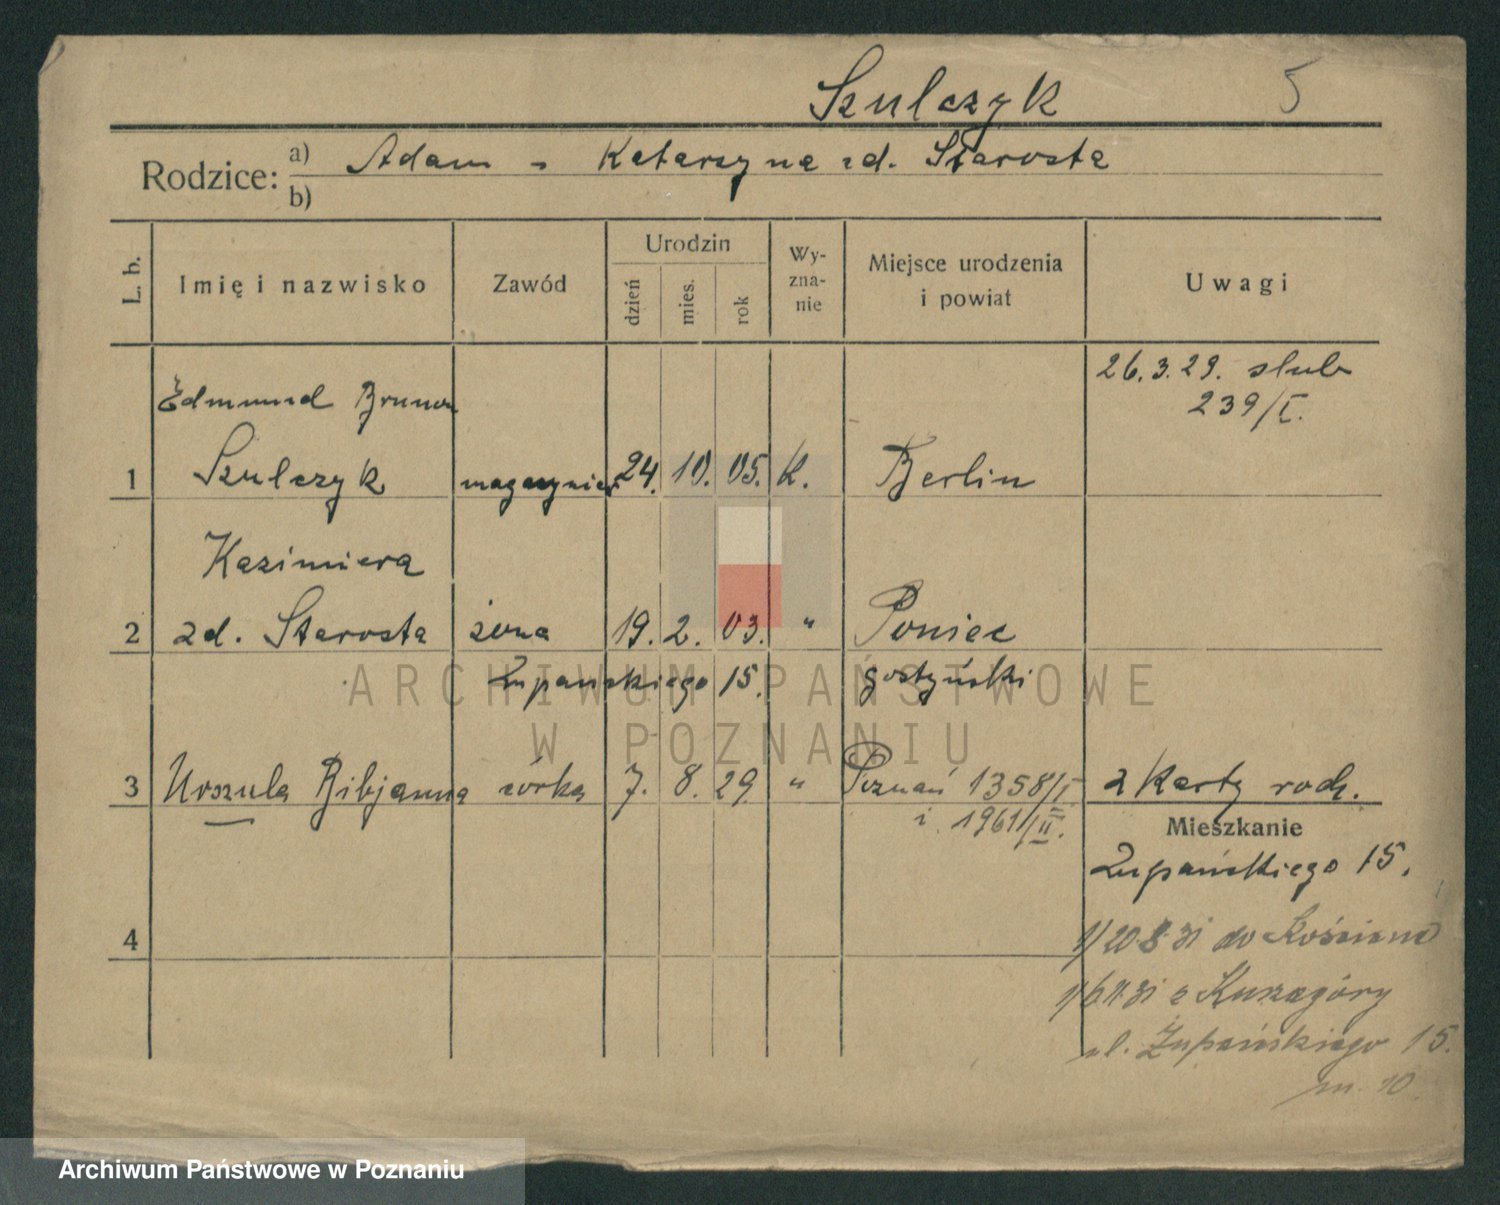 Szulczyk 5
Rodzice: a) Adam - Katarzyna zd. Starosta
b)
L. b. Imię i nazwisko Zawód Urodzin dzień mies. rok Wy-zna-nie Miejsce urodzenia i powiat Uwagi
26.3.29. slub
Edmund Brunon 239/I.
1 Szulczyk magazynier 24. 10. 05. k. Berlin
Kazimiera
2 zd. Starosta żona 19. 2. 03. " Poniec
Żupańskiego 15. gostyński
3 Urszula Bibjanna córka 7. 8. 29. " Poznań 1358/I z karty rodz.
i 1961/II.
Mieszkanie
Żupańskiego 15.
4
1/20.8.31 do Kościana
z Kurzagóry
ul. Żupańskiego 15.
m. 10.
ARCHIWUM PAŃSTWOWE
W POZNANIU
Archiwum Państwowe w Poznaniu